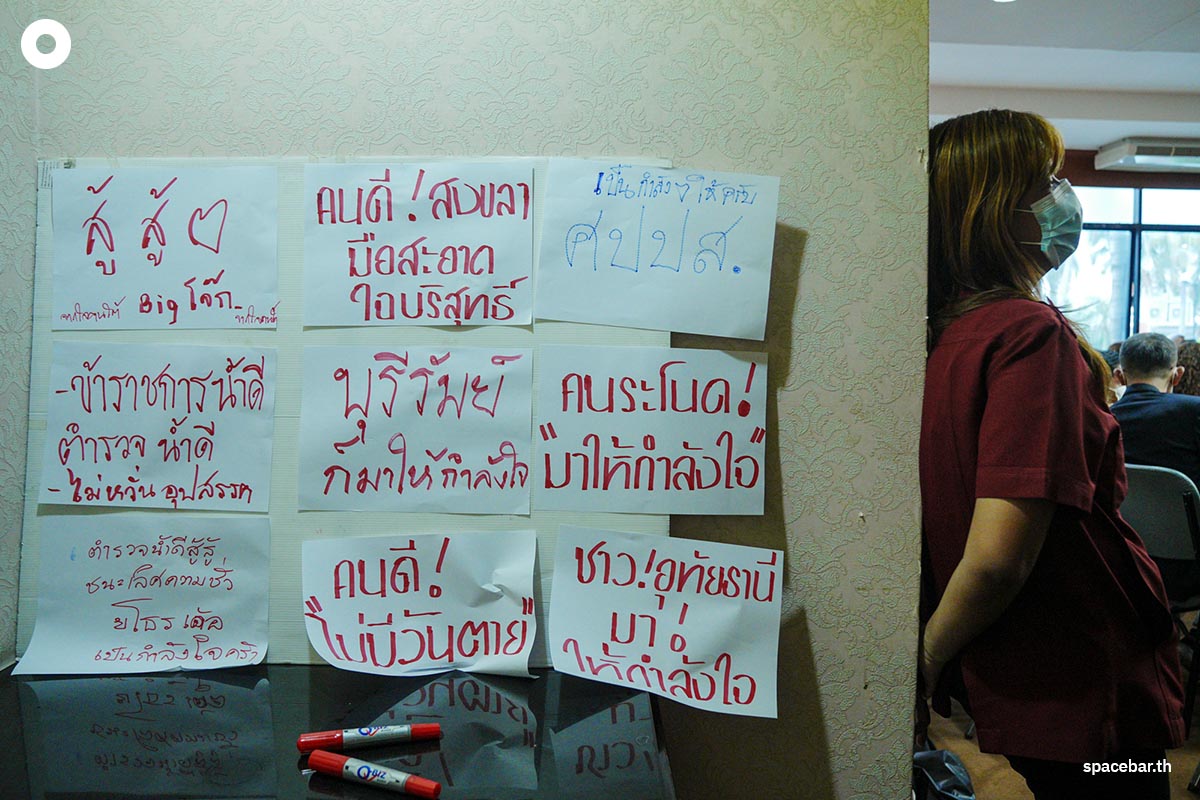 สู้ สู้ ๆ
จากใจคนใต้ Big โจ๊ก
คนดี ! สงขลา
มือสะอาด
ใจบริสุทธิ์
เป็นกำลังใจให้ครับ
ศปปส.
-ข้าราชการน้ำดี
ตำรวจ น้ำดี
-ไม่หวั่น อุปสรรค
บุรีรัมย์
ก็มาให้กำลังใจ
คนระโนด!
"มาให้กำลังใจ"
ตำรวจน้ำดีสู้สู้
ชนะโลกความชั่ว
ยโธร
เป็นกำลังใจครับ
คนดี!
"ไม่มีวันตาย"
ชาว!อุทัยธานี
มา!
ให้กำลังใจ
Q-BIZ
Q-BIZ
spacebar.th